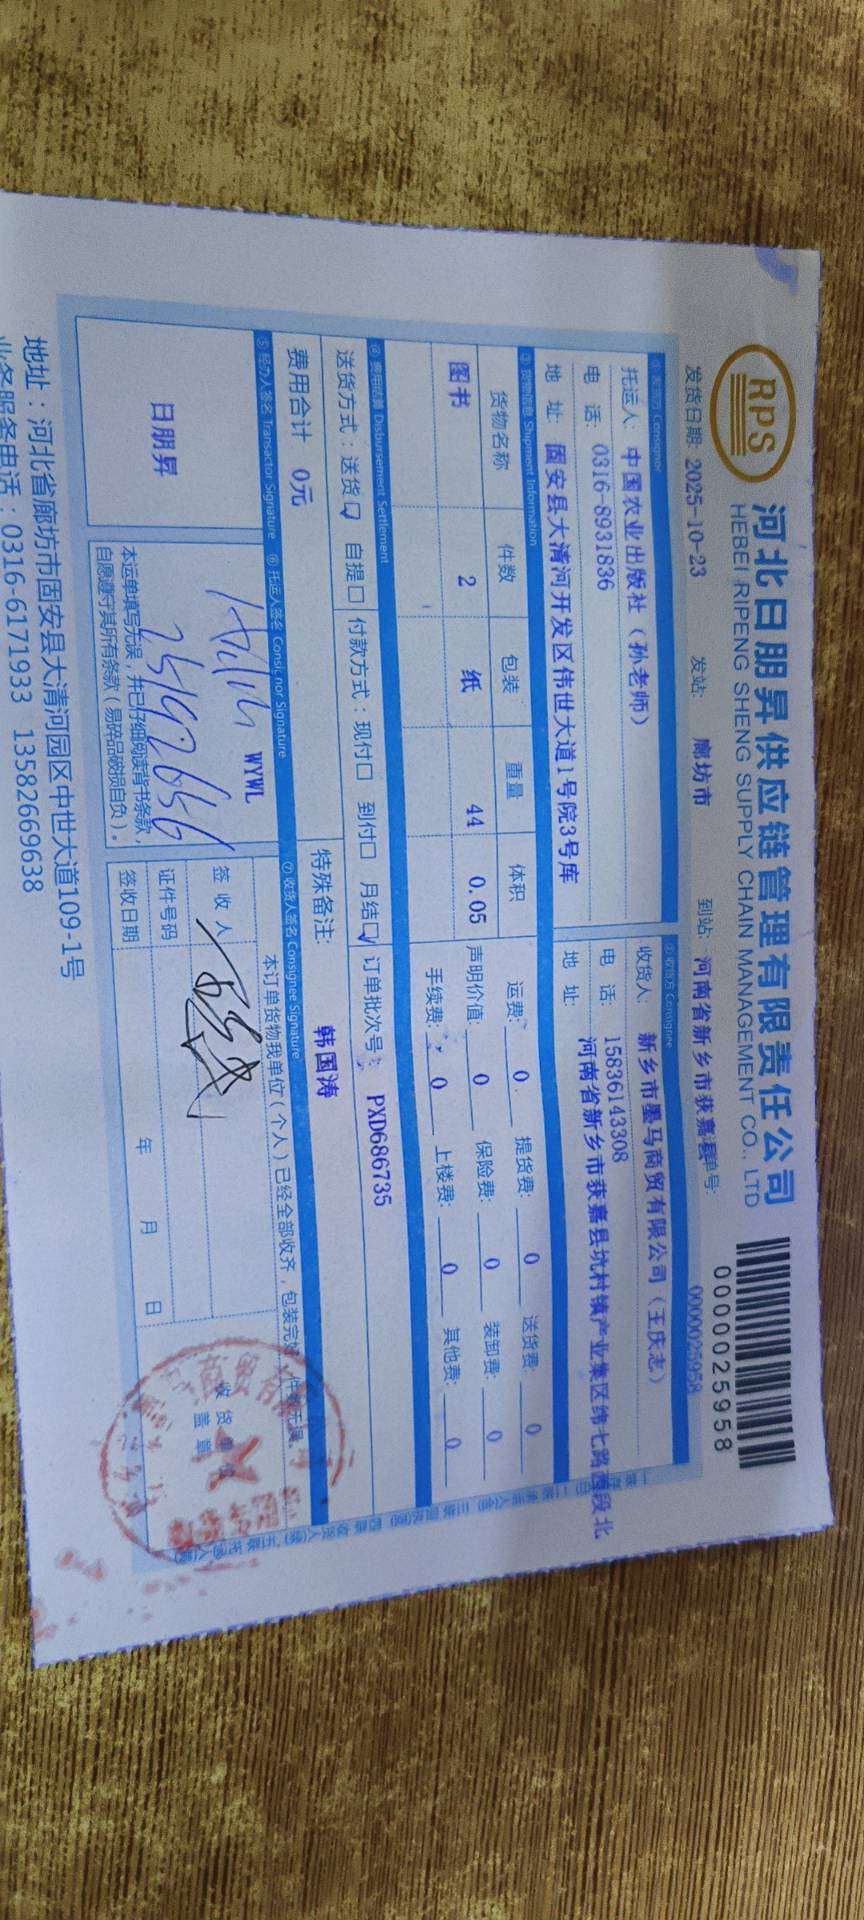 RPS
河北日朋昇供应链管理有限责任公司
HEBEI RIPENG SHENG SUPPLY CHAIN MANAGEMENT CO., LTD
0000025958
发货日期: 2025-10-23 发站: 廊坊市 到站: 河南省新乡市获嘉县 单号: 0000025958
① 发货方 Consignor
托运人: 中国农业出版社（孙老师）
电 话: 0316-8931836
地 址: 固安县大清河开发区伟世大道1号院3号库
② 收货方 Consignee
收货人: 新乡市墨马商贸有限公司（王庆志）
电 话: 15836143308
地 址: 河南省新乡市获嘉县亢村镇产业集区纬七路西段北
③ 货物信息 Shipment Information
货物名称 件数 包装 重量 体积
图书 2 纸 44 0.05
运费: 0. 提货费: 0 送货费: 0
声明价值: 0 保险费: 0 装卸费: 0
手续费: 0 上楼费: 0 其他费: 0
④ 费用结算 Disbursement Settlement
送货方式：送货☑ 自提□ 付款方式：现付□ 到付□ 月结☑ 订单批次号: PXD686735
费用合计 0元
特殊备注: 韩国涛
⑤ 经办人签名 Transactor Signature
日朋昇
⑥ 托运人签名 Consignor Signature
WYWL
本运单填写无误，并已仔细阅读背书条款，
自愿遵守其所有条款（易碎品破损自负）。
⑦ 收货人签名 Consignee Signature
本订单货物我单位（个人）已经全部收齐，包装完好，件数无误。
签 收 人
证件号码
签收日期 年 月 日
收货单位
盖章
地址：河北省廊坊市固安县大清河园区中世大道109-1号
业务服务电话：0316-6171933 13582669638